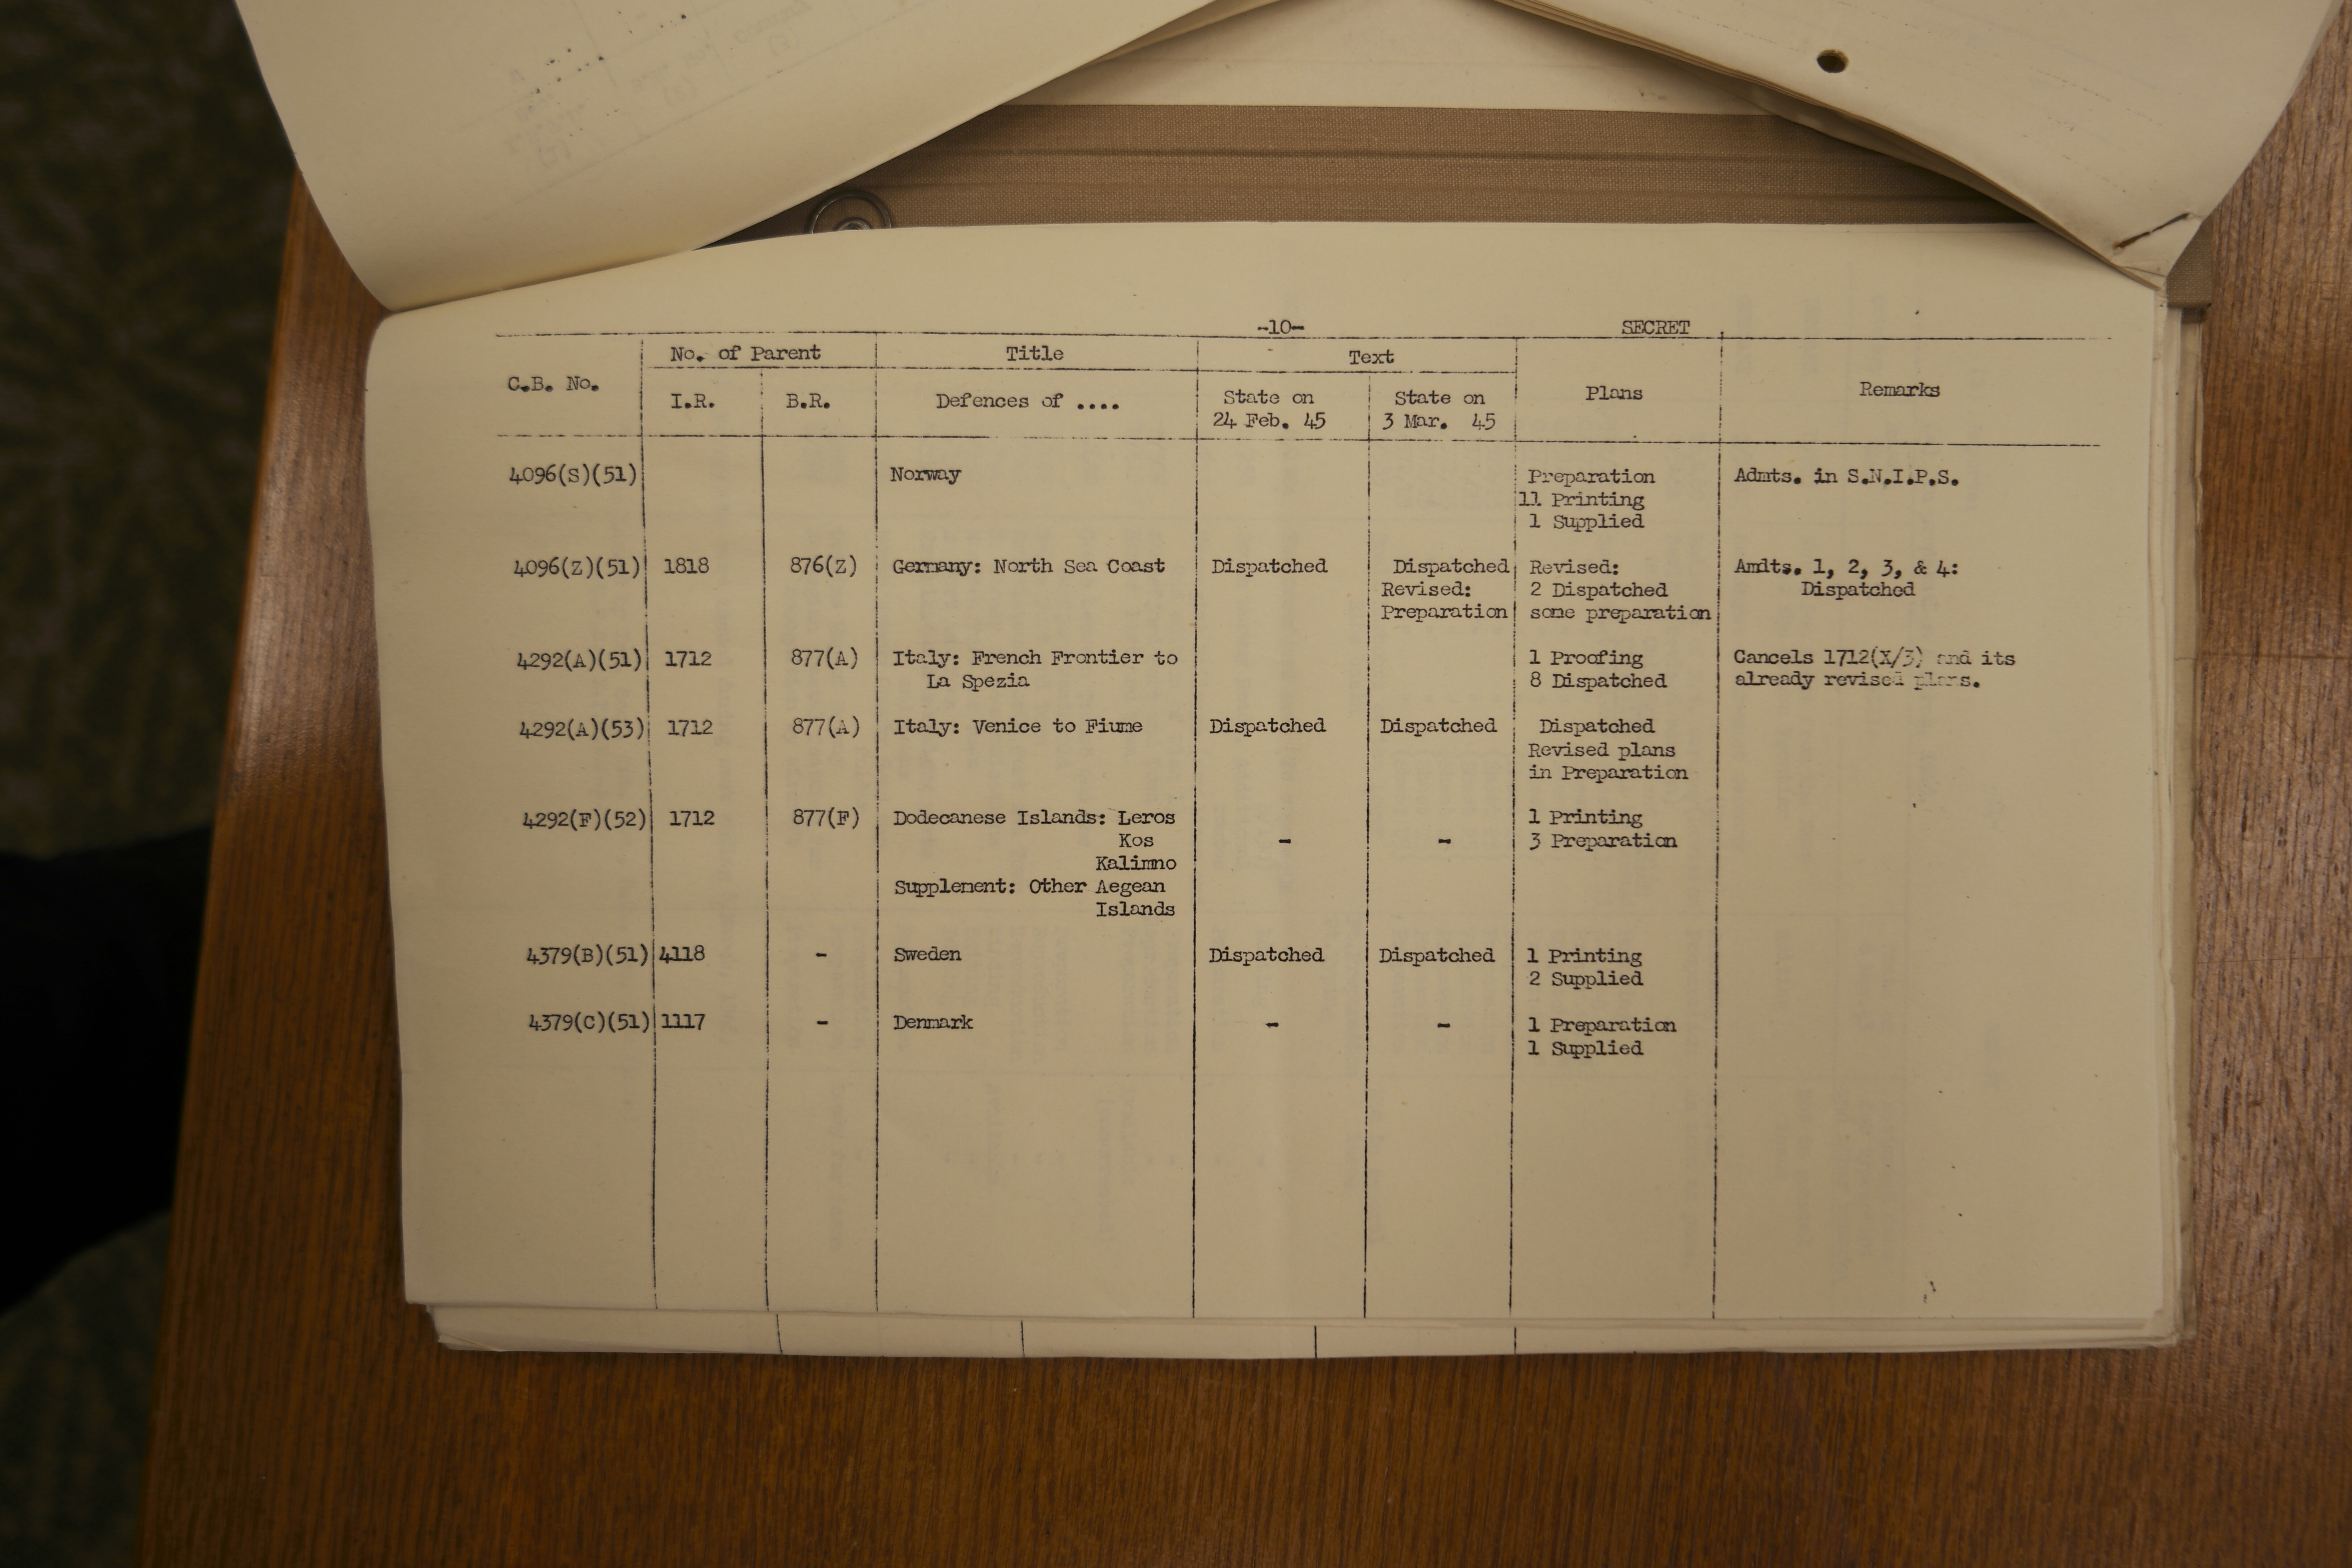 -10- SECRET
No. of Parent Title Text
C.B. No. Plans Remarks
I.R. B.R. Defences of .... State on State on
24 Feb. 45 3 Mar. 45
4096(S)(51) Norway Preparation Admts. in S.N.I.P.S.
11 Printing
1 Supplied
4096(Z)(51) 1818 876(Z) Germany: North Sea Coast Dispatched Dispatched Revised: Amdts. 1, 2, 3, & 4:
Revised: 2 Dispatched Dispatched
Preparation some preparation
4292(A)(51) 1712 877(A) Italy: French Frontier to 1 Proofing Cancels 1712(X/3) and its
La Spezia 8 Dispatched already revised plans.
4292(A)(53) 1712 877(A) Italy: Venice to Fiume Dispatched Dispatched Dispatched
Revised plans
in Preparation
4292(F)(52) 1712 877(F) Dodecanese Islands: Leros 1 Printing
Kos - - 3 Preparation
Kalimno
Supplement: Other Aegean
Islands
4379(B)(51) 4118 - Sweden Dispatched Dispatched 1 Printing
2 Supplied
4379(C)(51) 1117 - Denmark - - 1 Preparation
1 Supplied